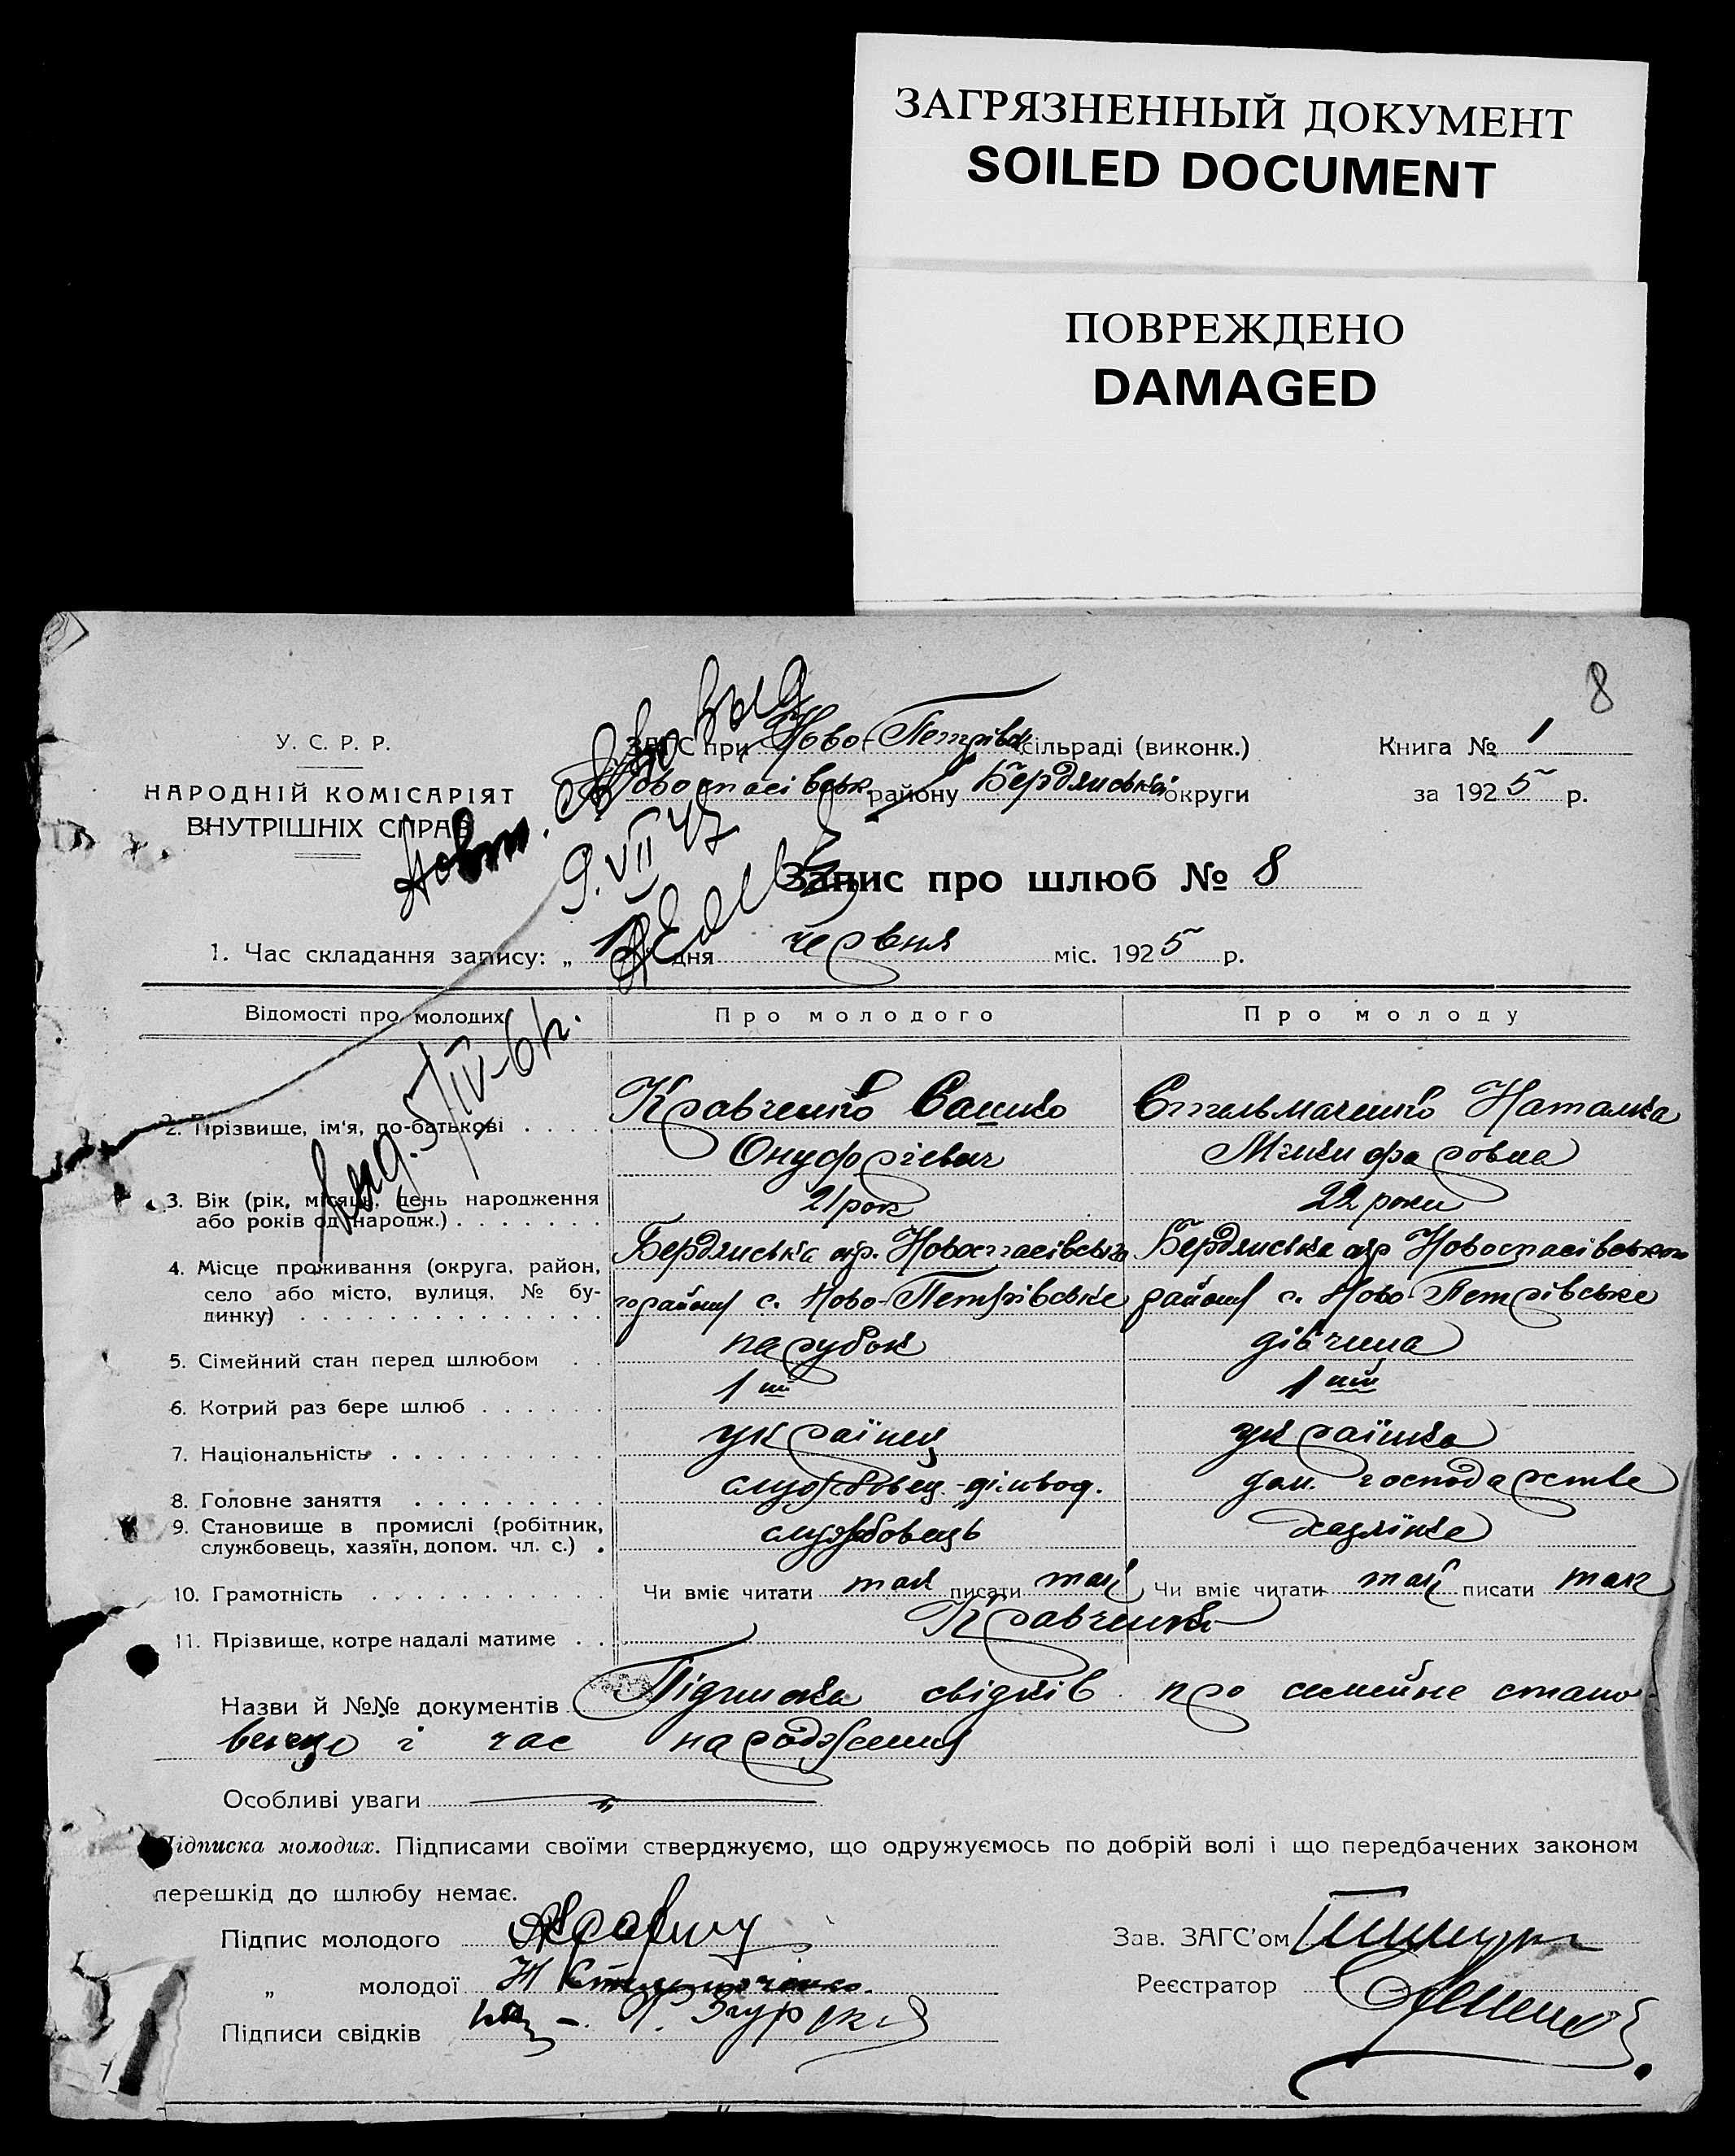 ЗАГРЯЗНЕННЫЙ ДОКУМЕНТ
SOILED DOCUMENT
ПОВРЕЖДЕНО
DAMAGED
8
У. С. Р. Р.
НАРОДНІЙ КОМІСАРІЯТ
ВНУТРІШНІХ СПРАВ
ЗАГС при Ново-Петрівск сільраді (виконк.)
Новоспасівськ району Бердянської округи
Книга № 1
за 1925 р.
9.VII 47
Запис про шлюб № 8
1. Час складання запису: „ дня червня міс. 1925 р.
Відомості про молодих
Про молодого
Про молоду
5/IV-61г.
2. Прізвище, ім'я, по-батькові
Кравченко Сашко
Стельмаченко Наталка
Онуфрієвич
Микифоровна
3. Вік (рік, місяць, день народження
або років од народж.)
21 рок
22 роки
4. Місце проживання (округа, район,
село або місто, вулиця, № бу-
динку)
Бердянська окр. Новоспасівсько
Бердянська окр Новоспасівського
го району с. Ново-Петрівське
району с. Ново-Петрівське
5. Сімейний стан перед шлюбом
парубок
дівчина
6. Котрий раз бере шлюб
1ий
1ий
7. Національність
українец
українка
8. Головне заняття
службовец-діловод.
дом. господарстве
9. Становище в промислі (робітник,
службовець, хазяїн, допом. чл. с.)
службовець
хазяїнка
10. Грамотність
Чи вміє читати так писати так
Чи вміє читати так писати так
11. Прізвище, котре надалі матиме
Кравченко
Назви й №№ документів Підписка свідків про семейне стано-
вище і час народження
Особливі уваги
Підписка молодих. Підписами своїми стверджуємо, що одружуємось по добрій волі і що передбачених законом
перешкід до шлюбу немає.
Підпис молодого
Зав. ЗАГС'ом
„ молодої Н Стельмаченко.
Реєстратор
Підписи свідків